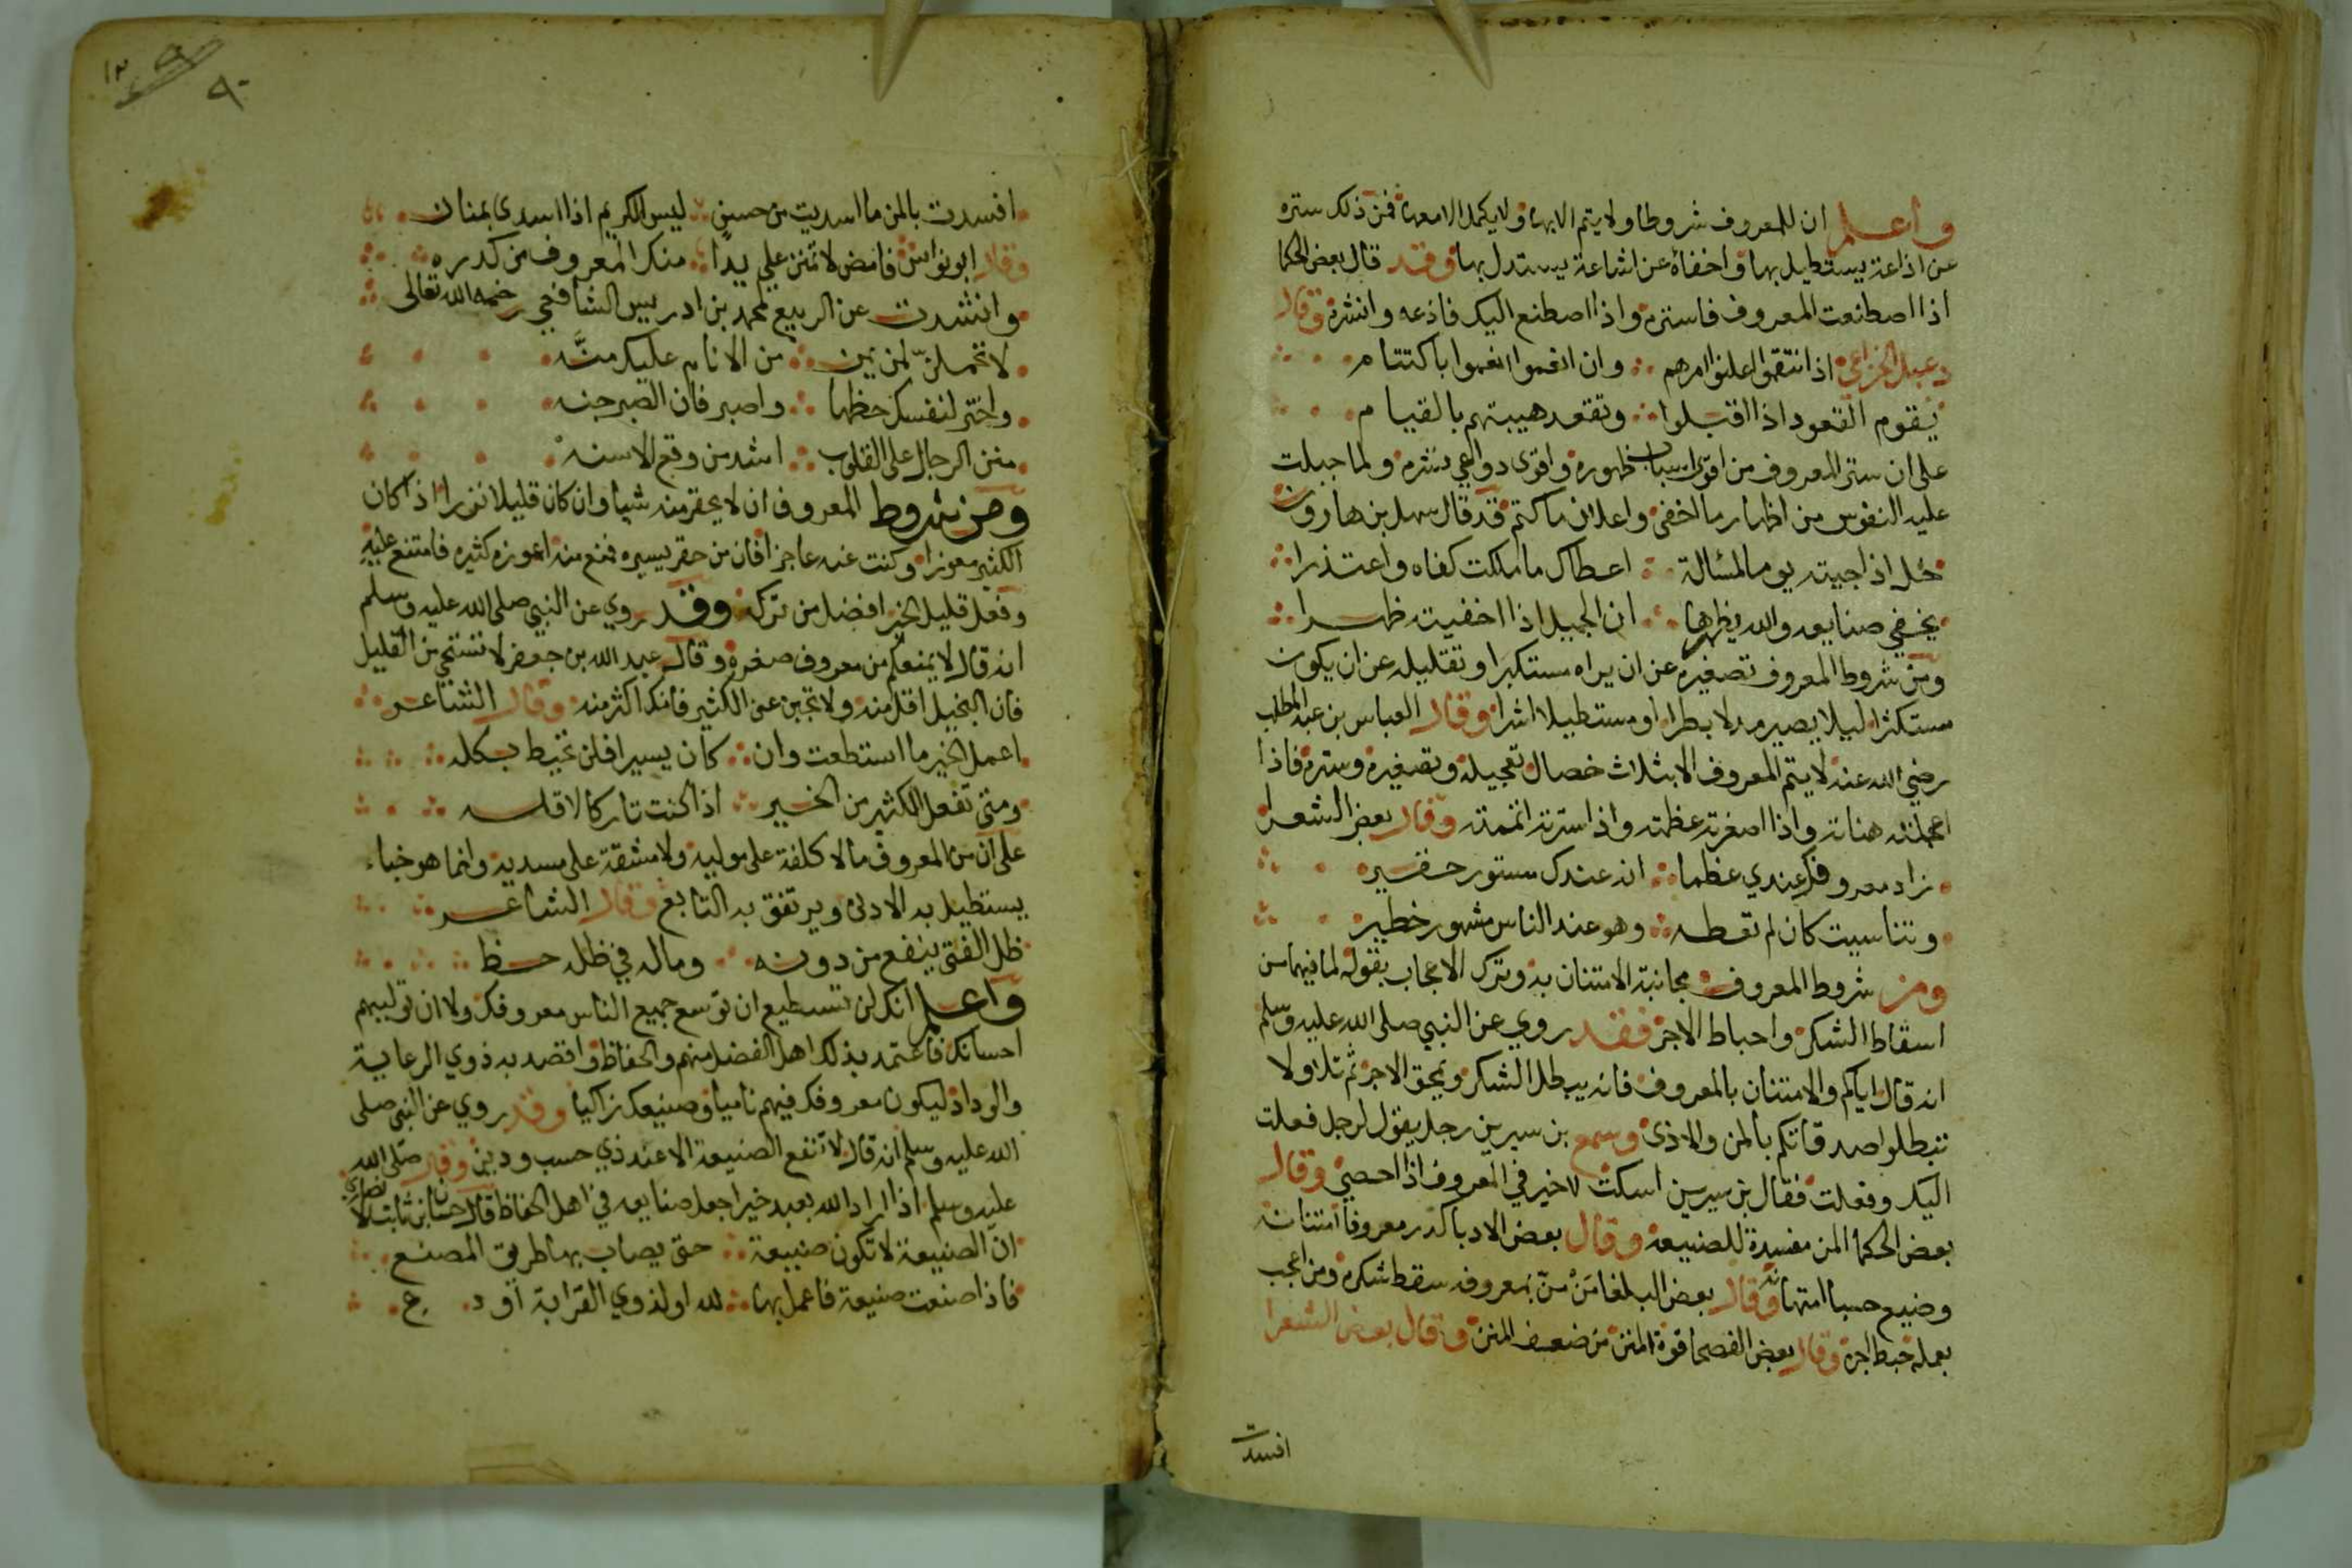 واعلم ان للمعروف شروطا ولا يتم الا بها ولا يكمل الا معها فمن ذلك ستره
عن اذاعة يستطيل بها واخفاه عن اشاعة يستدل بها وقد قال بعض الحكما
اذا اصطنعت المعروف فاستره واذا اصطنع اليك فاذعه وانشره وقال
دعبل الخزاعي اذا انتقموا اعلنوا امرهم وان انعموا انعموا باكتتام
يقوم القعود اذا اقبلوا وتقعد هيبتهم بالقيام
على ان ستر المعروف من اقوى اسباب ظهوره واقوى دواعي نشره ولما جبلت
عليه النفوس من اظهار ما اخفي واعلان ما كتم قد قال سهل بن هارون
خل اذا جيته يوما لمسالة اعطاك ما ملكت كفاه واعتذرا
يخفي صنايعه والله يظهرها ان الجميل اذا اخفيته ظهرا
ومن شروط المعروف تصغيره عن ان يراه مستكبرا وتقليله عن ان يكون
مستكثرا ليلا يصير مدلا بطرا او مستطيلا اشرا وقال العباس بن عبد المطلب
رضي الله عنه لا يتم المعروف الا بثلاث خصال تعجيله وتصغيره وستره فاذا
اعجلته هناته واذا اصغرته عظمته واذا سترته اتممته وقال بعض الشعرا
زاد معروفك عندي عظما انه عندك مستور حقير
وتناسيت كان لم تعطه وهو عند الناس مشهور خطير
ومن شروط المعروف مجانبة الامتنان به وترك الاعجاب بقوله لما فيهما من
اسقاط الشكر واحباط الاجر فقد روي عن النبي صلى الله عليه وسلم
انه قال اياكم والامتنان بالمعروف فانه يبطل الشكر ويمحق الاجر ثم تلا ولا
تبطلوا صدقاتكم بالمن والاذى وسمع بن سيرين رجل يقول لرجل فعلت
اليك وفعلت فقال بن سيرين اسكت لا خير في المعروف اذا احصي وقال
بعض الحكما المن مفسدة للصنيعة وقال بعض الادبا كدر معروفا امتنانه
وضيع حسبا امتهانه وقال بعض البلغا مَنْ منّ بمعروفه سقط شكره ومن اعجب
بعمله حبط اجره وقال بعض الفصحا قوة المنن من ضعف المنن وقال بعض الشعرا
افسدت
٩٠
افسدت بالمن ما اسديت من حسن ليس الكريم اذا اسدى بمنان
وقال ابو نواس فامض لا تمنن علي يدا منك المعروف من كدره
وانشدت عن الربيع لمحمد بن ادريس الشافعي رحمه الله تعالى
لا تحملنّ لمن يمن من الانام عليك منَّه
واختر لنفسك حظها واصبر فان الصبر جنه
منن الرجال على القلوب اشد من وقع الاسنه
ومن شروط المعروف ان لا يحقر منه شيا وان كان قليلا نزرا اذا كان
الكثير معوزا وكنت عنه عاجزا فان من حقر يسيره فمنع منه اعوزه كثيره فامتنع عليه
وفعل قليل الخير افضل من تركه وقد روي عن النبي صلى الله عليه وسلم
انه قال لا يمنعكم من معروف صغره وقال عبد الله بن جعفر لا تستحي من القليل
فان البخيل اقل منه ولا تجبن عن الكثير فانك اكثر منه وقال الشاعر
اعمل الخير ما استطعت وان كان يسيرا فلن تحيط بكله
ومتى تفعل الكثير من الخير اذا كنت تاركا لاقله
على ان من المعروف ما لا كلفة على موليه ولا مشقة على مسديه وانما هو جاه
يستطيل به الادنى ويرتفق به التابع وقال الشاعر
ظل الفتى ينفع من دونه وماله في ظله حظ
واعلم انك لن تستطيع ان توسع جميع الناس معروفك ولا ان توليهم
احسانك فاعتمد بذلك اهل الفضل منهم والحفاظ واقصد به ذوي الرعاية
والوداد ليكون معروفك فيهم ناميا وصنيعك زاكيا وقد روي عن النبي صلى
الله عليه وسلم انه قال لا تنفع الصنيعة الا عند ذي حسب ودين وقال صلى الله
عليه وسلم اذا اراد الله بعبد خيرا جعل صنايعه في اهل الحفاظ قال حسان بن ثابت الانصاري
ان الصنيعة لا تكون صنيعة حتى يصاب بها طريق المصنع
فاذا صنعت صنيعة فاعمل بها لله او لذوي القرابة او دع